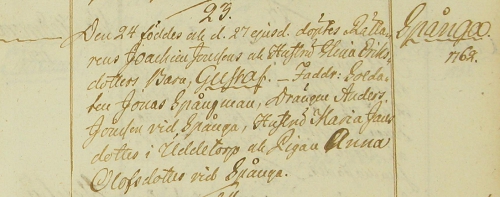 23.
Den 24 föddes och d. 27 ejusd. döptes Rätta-
rens Joachim Jonssons och Hustru Stina Eriks-
dotters Barn, Gustaf. – Faddr: Solda-
ten Jonas Spångman, Drängen Anders
Jonsson vid Spånga, Hustru Maria Jans
dotter i Uddetorp och Pigan Anna
Olofsdotter vid Spånga.
Spånga.
1762.